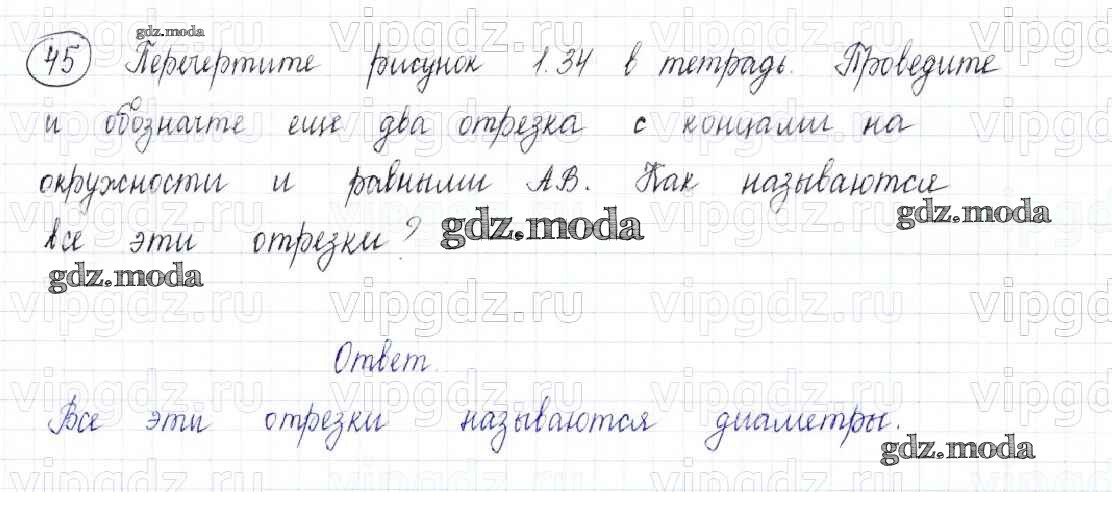 gdz.moda
45 Перечертите рисунок 1.34 в тетрадь. Проведите
и обозначте еще два отрезка с концами на
окружности и равными АВ. Как называются
gdz.moda
все эти отрезки?
gdz.moda
gdz.moda
vipgdz.ru vipgdz.ru vipgdz.ru
Ответ.
Все эти отрезки называются диаметры.
gdz.moda